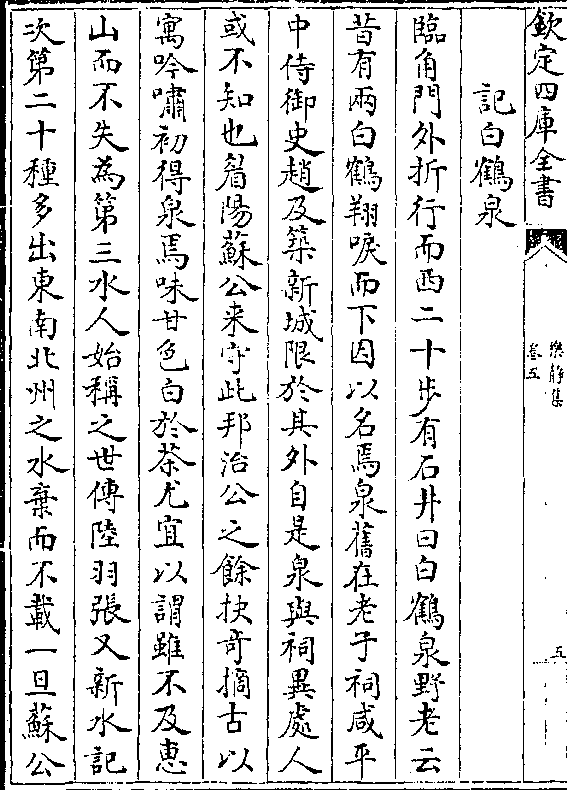 欽定四庫全書
樂静集
卷五
五
記白鶴泉
臨角門外折行而西二十步有石井曰白鶴泉野老云
昔有兩白鶴翔唳而下因以名焉泉舊在老子祠咸平
中侍御史趙及築新城限於其外自是泉與祠異處人
或不知也眉陽蘇公来守此邦治公之餘抉奇摘古以
寓吟嘯初得泉焉味甘色白於茶尤宜以謂雖不及惠
山而不失為第三水人始稱之世傳陸羽張又新水記
次第二十種多出東南北州之水棄而不載一旦蘇公